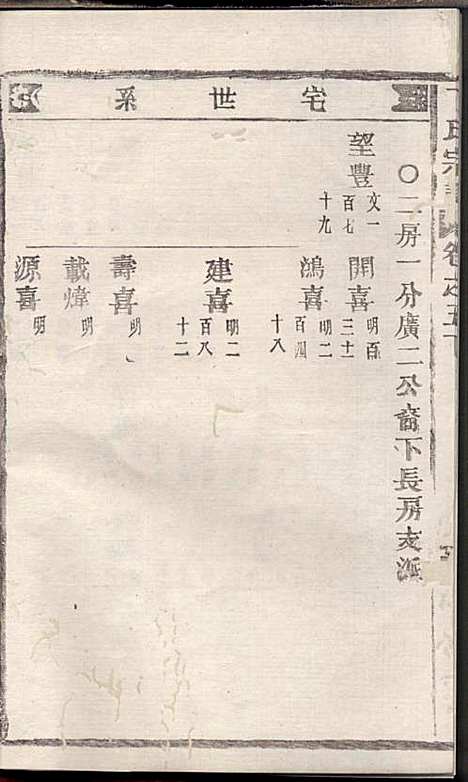 宅世系
〇二房一分廣二公裔下長房支派
望豐 文一百七十九
開喜 明百三十一
鴻喜 明二百四十八
建喜 明二百八十二
壽喜 明
載煒 明
源喜 明
氏宗